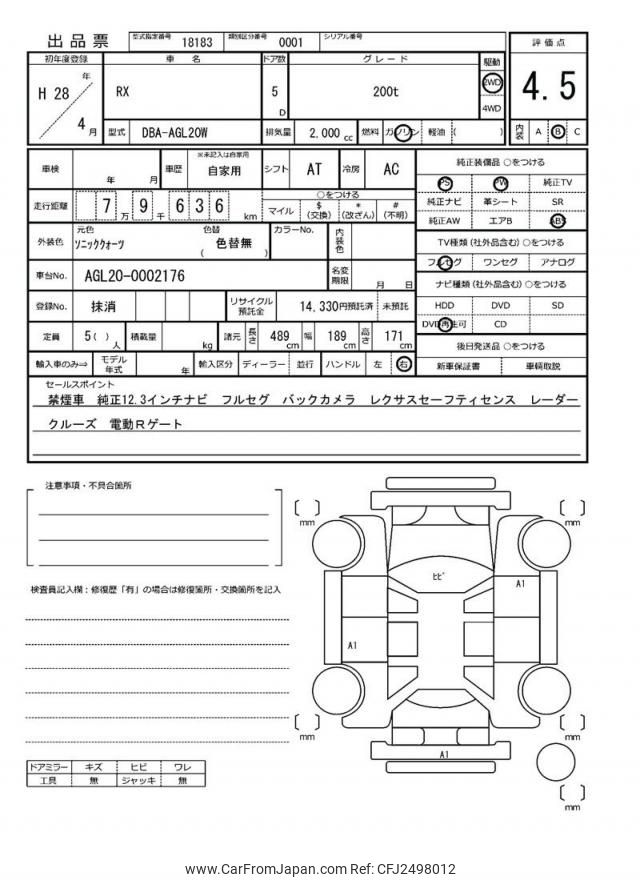 出品票
型式指定番号 18183 類別区分番号 0001 シリアル番号
初年度登録 車名 ドア数 グレード 駆動 評価点
H 28 年 4 月 RX 5 D 200t 2WD 4WD 4.5
型式 DBA-AGL20W 排気量 2,000 cc 燃料 ガソリン 軽油 ( ) 内装 A B C
車検 年 月 車歴 ※未記入は自家用 自家用 シフト AT 冷房 AC
走行距離 7 万 9 千 6 3 6 km ○をつける
マイル $ (交換) * (改ざん) # (不明)
外装色 元色 ソニッククォーツ 色替 ( 色替無 ) カラーNo. 内装色
車台No. AGL20-0002176 名変期限 月 日
登録No. 抹消 リサイクル預託金 14,330円預託済 未預託
定員 5( ) 人 積載量 kg 諸元 長さ 489 cm 幅 189 cm 高さ 171 cm
輸入車のみ⇒ モデル年式 年 輸入区分 ディーラー 並行 ハンドル 左 右
純正装備品 ○をつける
PS PW 純正TV
純正ナビ 革シート SR
純正AW エアB ABS
TV種類 (社外品含む) ○をつける
フルセグ ワンセグ アナログ
ナビ種類 (社外品含む) ○をつける
HDD DVD SD
DVD再生可 CD
後日発送品 ○をつける
新車保証書 車輌取説
セールスポイント
禁煙車 純正12.3インチナビ フルセグ バックカメラ レクサスセーフティセンス レーダー
クルーズ 電動Rゲート
注意事項・不具合箇所
検査員記入欄：修復歴「有」の場合は修復箇所・交換箇所を記入
ドアミラー キズ ヒビ ワレ
工具 無 ジャッキ 無
mm
mm
ヒビ
A1
A1
mm
mm
A1
mm
www.CarFromJapan.com Ref: CFJ2498012